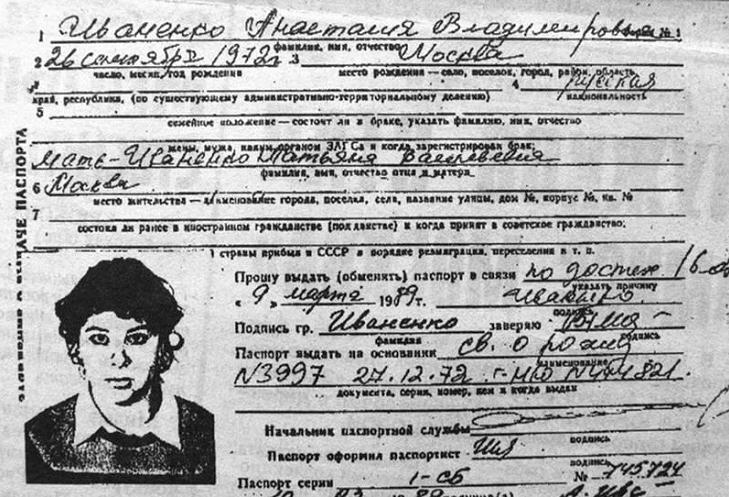 1 Иваненко Анастасия Владимировна № 1
фамилия, имя, отчество
2 26 сентября 1972г 3 Москва
число, месяц, год рождения место рождения — село, поселок, город, район, область
4 русская
край, республика, (по существующему административно-территориальному делению) национальность
5
семейное положение — состоит ли в браке, указать фамилию, имя, отчество
жены, мужа, каким органом ЗАГСа и когда зарегистрирован брак;
Мать - Иваненко Татьяна Васильевна
фамилия, имя, отчество отца и матери
6 Москва
место жительства — наименование города, поселка, села, название улицы, дом №, корпус №, кв. №
7
состоял ли ранее в иностранном гражданстве (подданстве) и когда принят в советское гражданство;
страны прибыл в СССР в порядке реэмиграции, переселения и т. п.
ЗАЯВЛЕНИЕ О ВЫДАЧЕ ПАСПОРТА
Прошу выдать (обменять) паспорт в связи по достиж. 16-
указать причину
« 9 » марта 1989 г.
подпись
Подпись гр. Иваненко заверяю
фамилия подпись
Паспорт выдать на основании св. о рожд
наименование
N3997 27.12.72 г.
документа, серия, номер, кем и когда выдан
Начальник паспортной службы
подпись
Паспорт оформил паспортист
подпись
Паспорт серии I-СБ № 745724